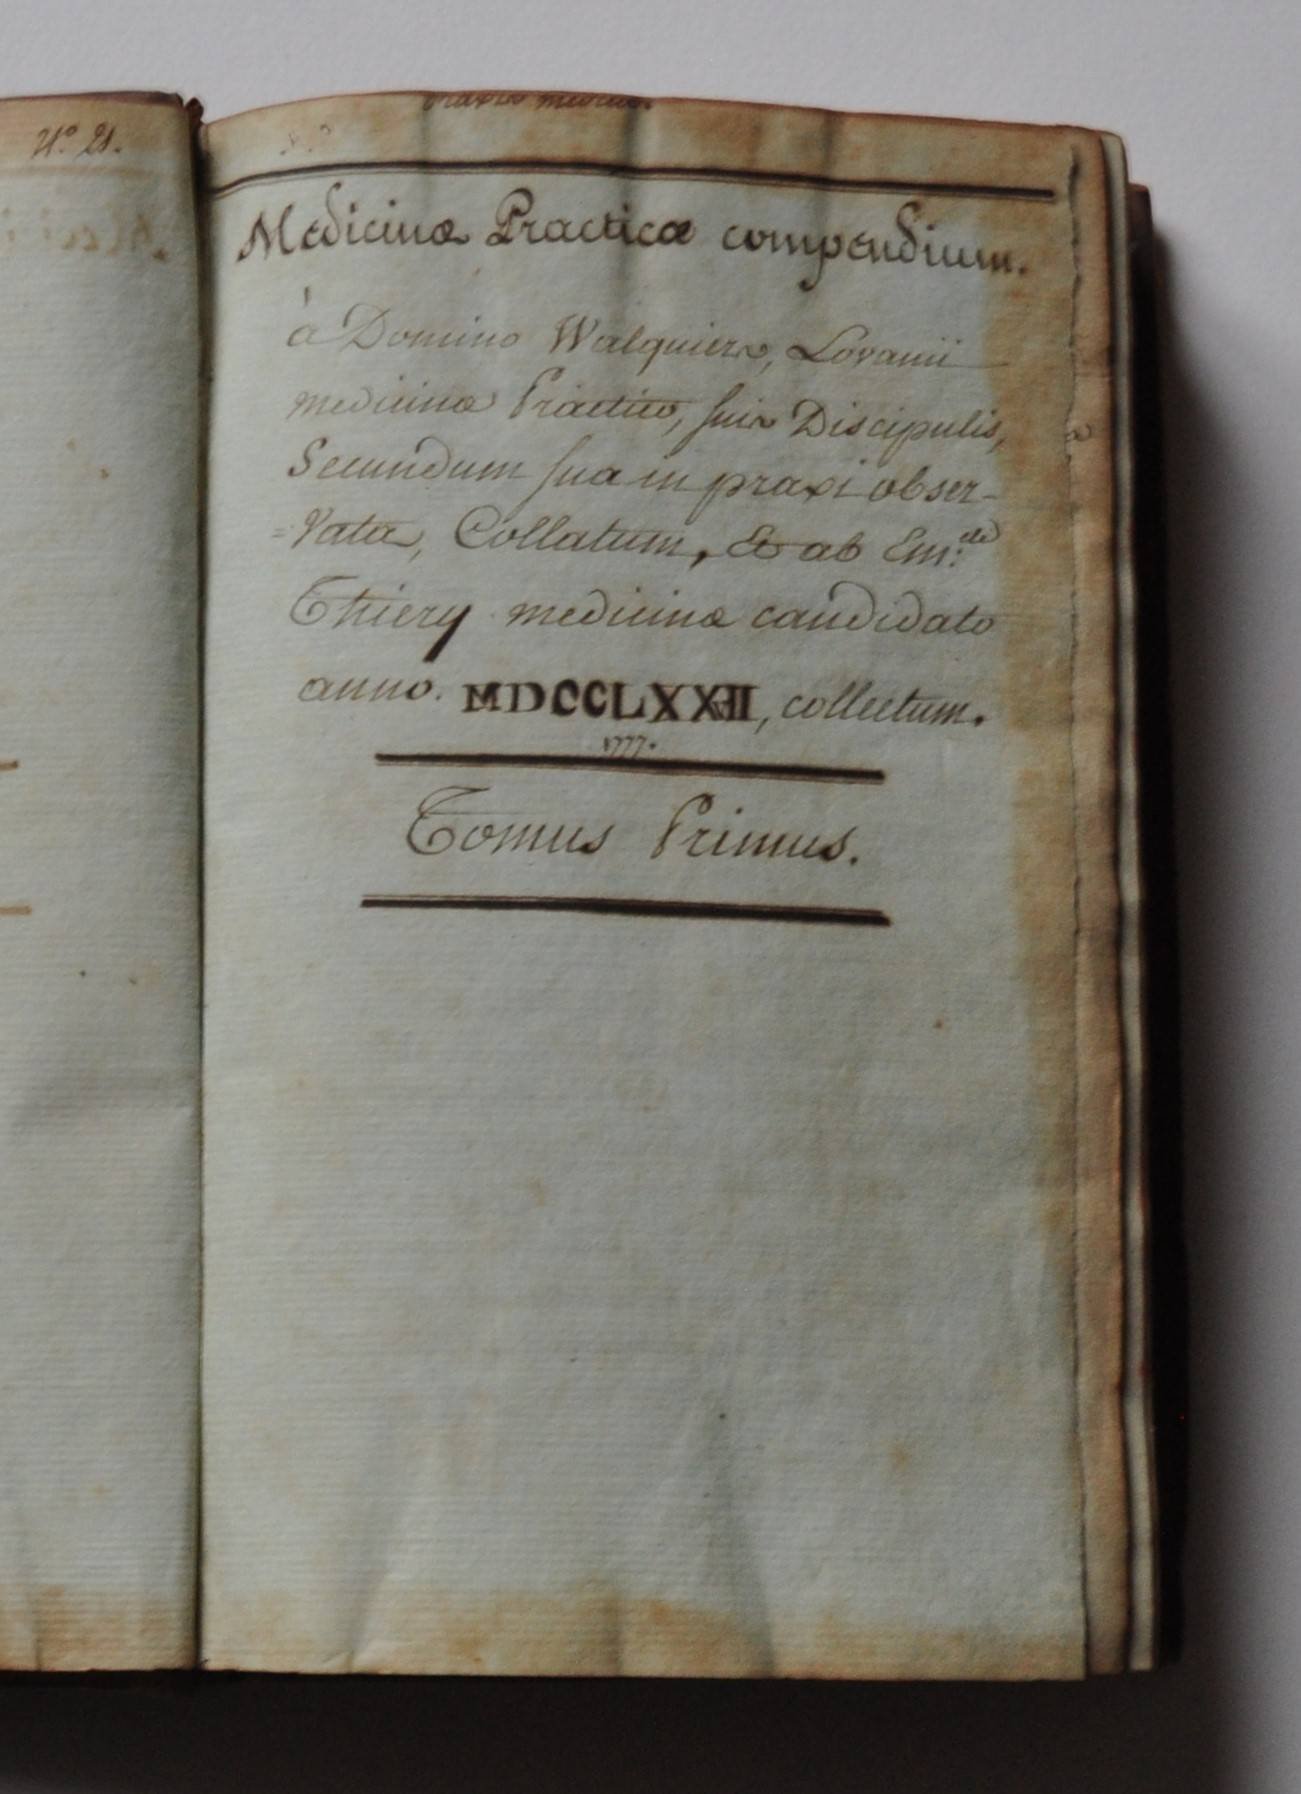 N.° 21.
praxis medica.
Medicinæ Practicæ compendium.
à Domino Walquiers, Lovanii
medicinæ Practico, suis Discipulis,
Secundum sua in praxi obser-
=vata, Collatum, & ab Em:
Thiery medicinæ candidato
anno. MDCCLXXVII, collectum.
1777.
Tomus Primus.